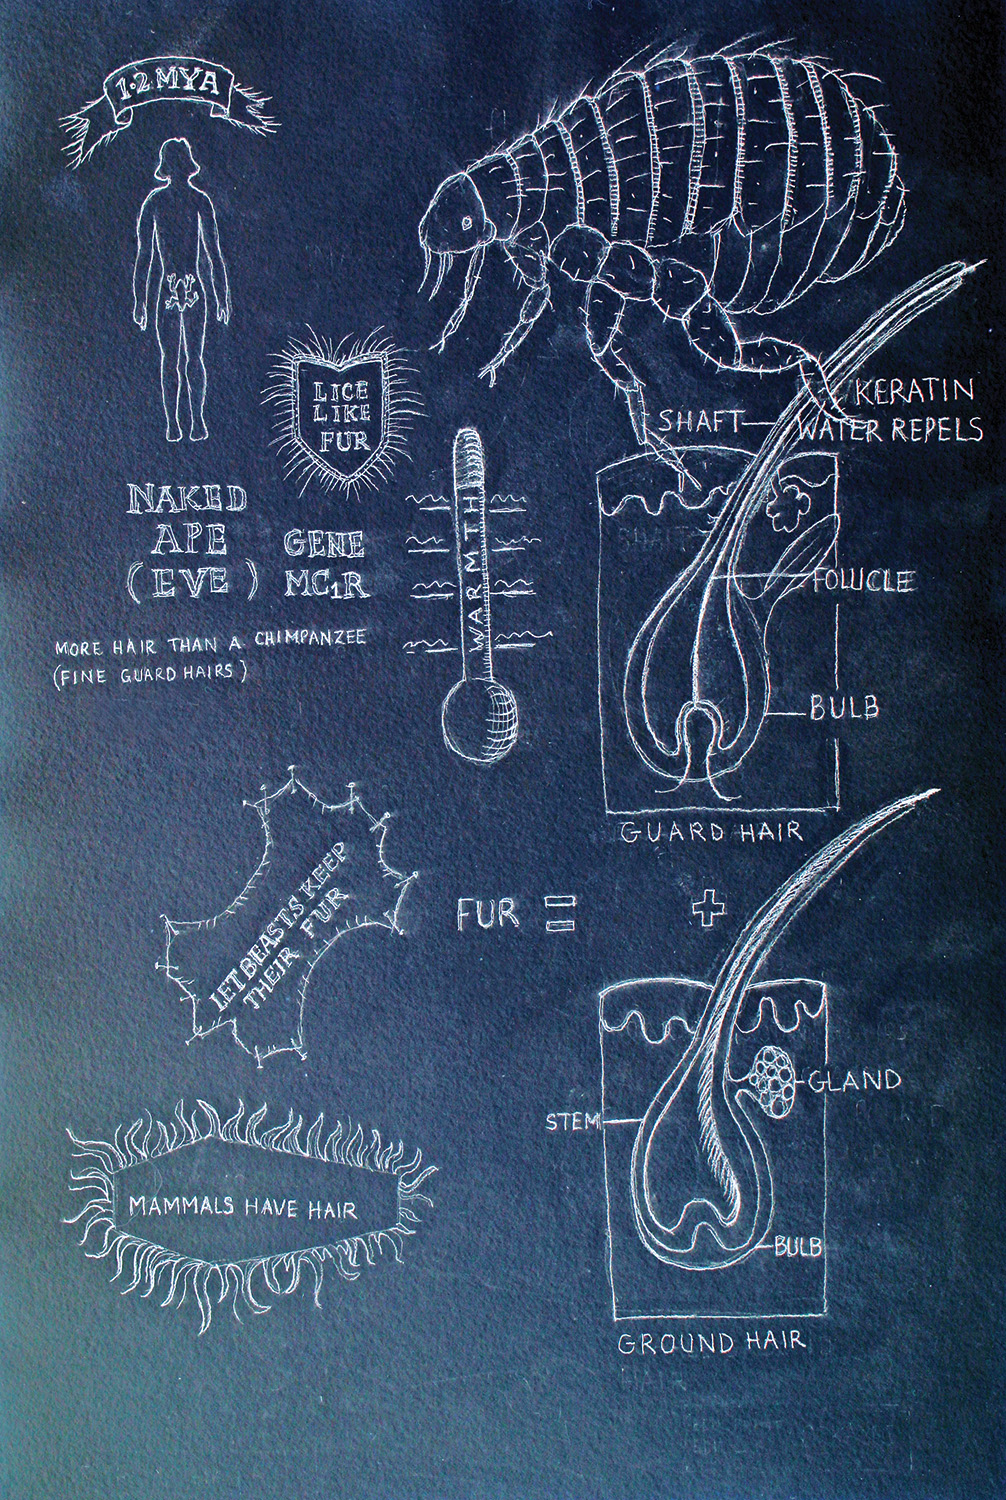 1·2 MYA
LICE
LIKE
FUR
NAKED
APE
(EVE)
GENE
MC1R
MORE HAIR THAN A CHIMPANZEE
(FINE GUARD HAIRS)
WARMTH
SHAFT
KERATIN
WATER REPELS
FOLLICLE
BULB
GUARD HAIR
LET BEASTS KEEP
THEIR FUR
FUR = +
GLAND
STEM
BULB
GROUND HAIR
MAMMALS HAVE HAIR